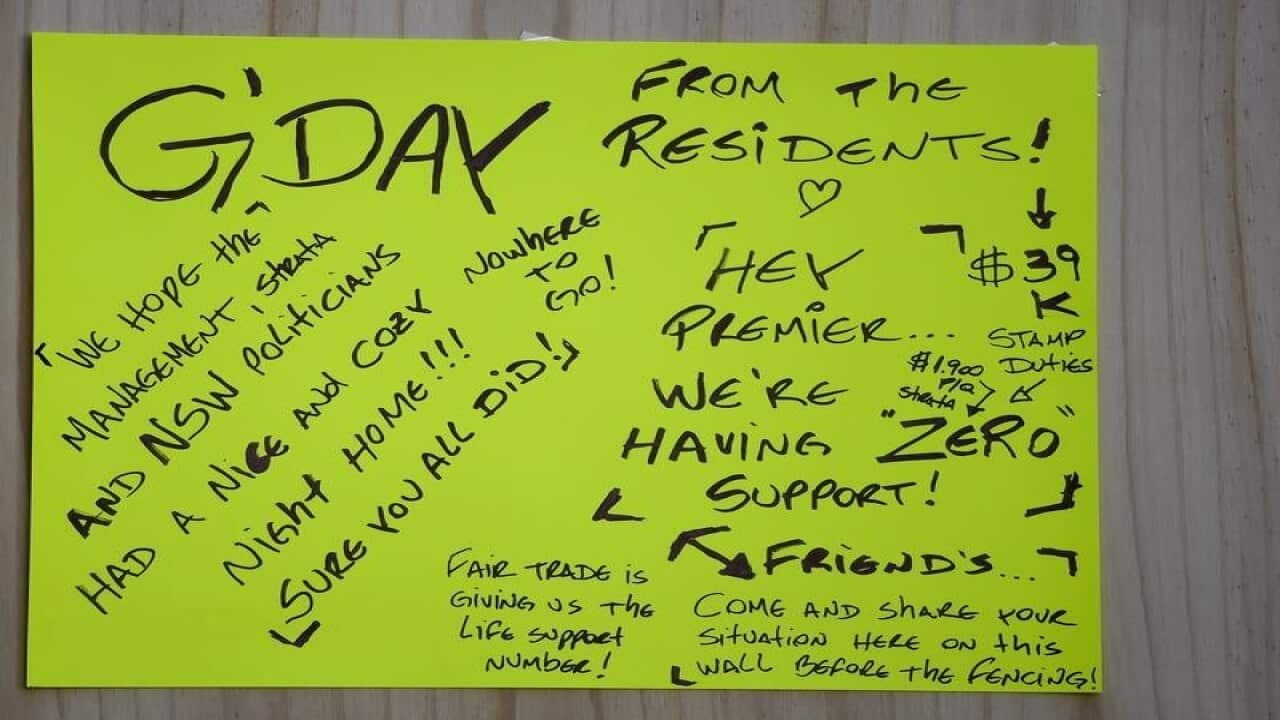 G'DAY
FROM THE
RESIDENTS!
"WE HOPE the
MANAGEMENT, strata
AND NSW POLITICIANS
HAD A NICE AND COZY
NIGHT HOME!!!
SURE YOU ALL DID!
NOWHERE
TO
GO!
HEY
PREMIER...
WE'RE
HAVING "ZERO"
SUPPORT!
$39
K
STAMP
DUTIES
$1.900
P/Q
strata
FAIR TRADE is
GIVING US THE
LIFE SUPPORT
NUMBER!
FRIEND'S...
COME AND SHARE YOUR
SITUATION HERE ON this
WALL BEFORE THE FENCING!